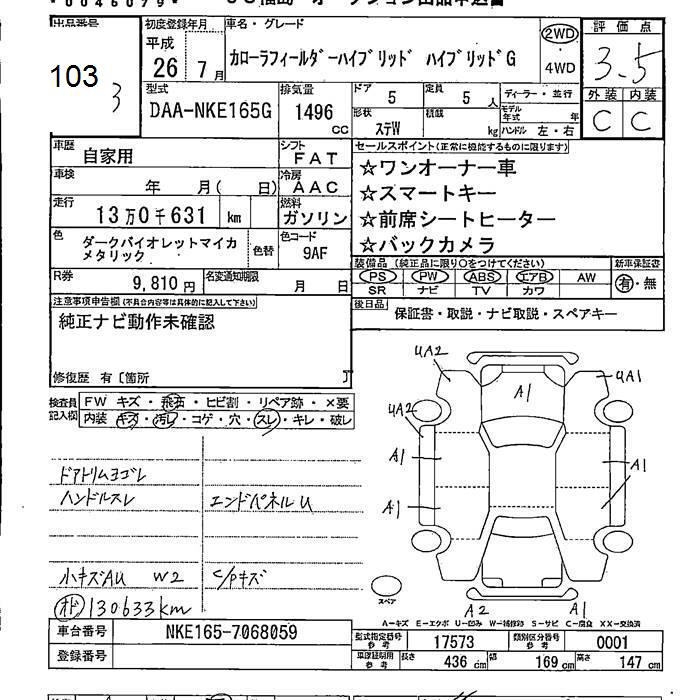 出品番号
103
3
初度登録年月
平成
26年 7月
車名・グレード
カローラフィールダーハイブリッド ハイブリッドG
2WD
4WD
評価点
3.5
外装 内装
C C
型式
DAA-NKE165G
排気量
1496 cc
ドア
5
定員
5人
形状
ステW
積載
kg
ディーラー・並行
モデル年式 年
ハンドル 左・右
車歴
自家用
シフト
FAT
車検
年 月( 日)
冷房
AAC
走行
13万0千631 km
燃料
ガソリン
色
ダークバイオレットマイカ
メタリック
色替
色コード
9AF
R券
9,810円
名変通知期限
月 日
セールスポイント(正常に機能するものに限ります)
☆ワンオーナー車
☆スマートキー
☆前席シートヒーター
☆バックカメラ
装備品(純正品に限り○をつけてください)
PS PW ABS エアB AW
SR ナビ TV カワ
新車保証書
有・無
後日品
保証書・取説・ナビ取説・スペアキー
注意事項申告欄(不具合内容等は具体的に記入して下さい)
純正ナビ動作未確認
修復歴 有〔箇所 〕
検査員記入欄
FW キズ・飛石・ヒビ割・リペア跡・×要
内装 キズ・汚レ・コゲ・穴・スレ・キレ・破レ
ドアトリムヨゴレ
ハンドルスレ
エンドパネルU
小キズAU W2
C/Pキズ
オド 130.633km
UA2
A1
UA1
UA2
A1
A1
A1
A2
A1
スペア
A-キズ E-エクボ U-凹み W-補修跡 S-サビ C-腐食 XX-交換済
車台番号
NKE165-7068059
登録番号
型式指定番号 参考
17573
類別区分番号 参考
0001
車庫証明用 参考
長さ 436cm
幅 169cm
高さ 147cm